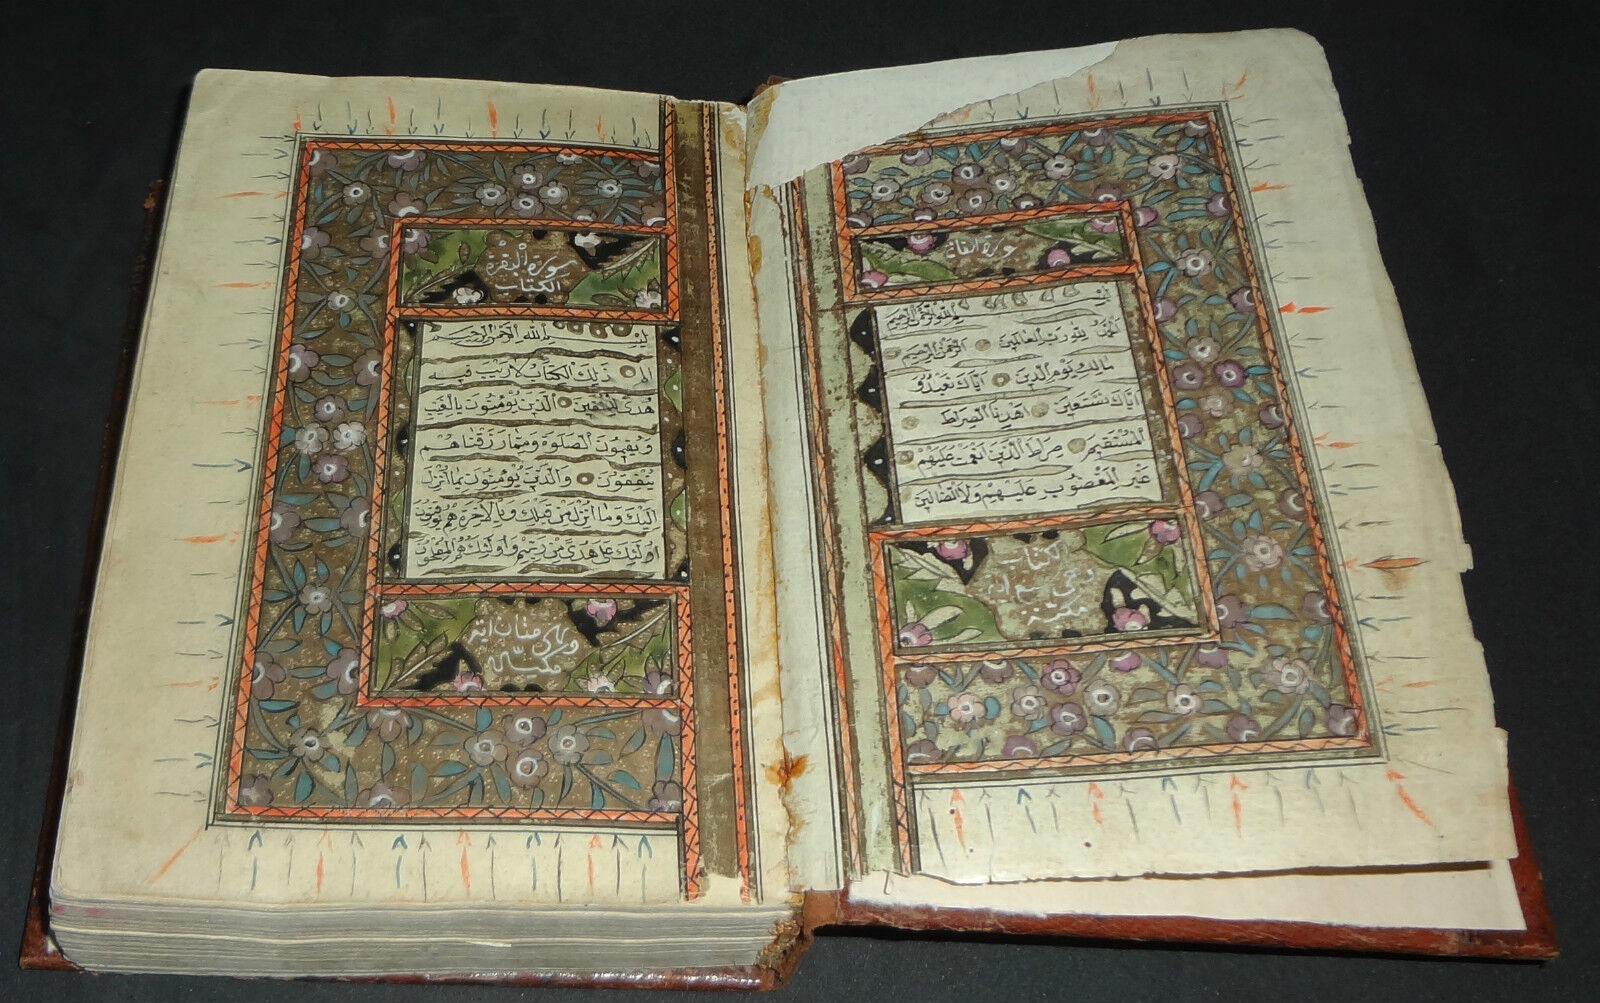 سورة الفاتحة
بسم الله الرحمن الرحيم
الحمد لله رب العالمين الرحمن الرحيم
مالك يوم الدين اياك نعبد و
اياك نستعين اهدنا الصراط
المستقيم صراط الذين انعمت عليهم
غير المغضوب عليهم ولا الضالين
الكتاب
وهي سبع اية
مكية
سورة البقرة
الكتاب
بسم الله الرحمن الرحيم
الم ذلك الكتاب لا ريب فيه
هدى للمتقين الذين يؤمنون بالغيب
ويقيمون الصلوة ومما رزقناهم
ينفقون والذين يؤمنون بما انزل
اليك وما انزل من قبلك وبالاخرة هم يوقنون
اولئك على هدى من ربهم واولئك هم المفلحون
وهي مئتان اية